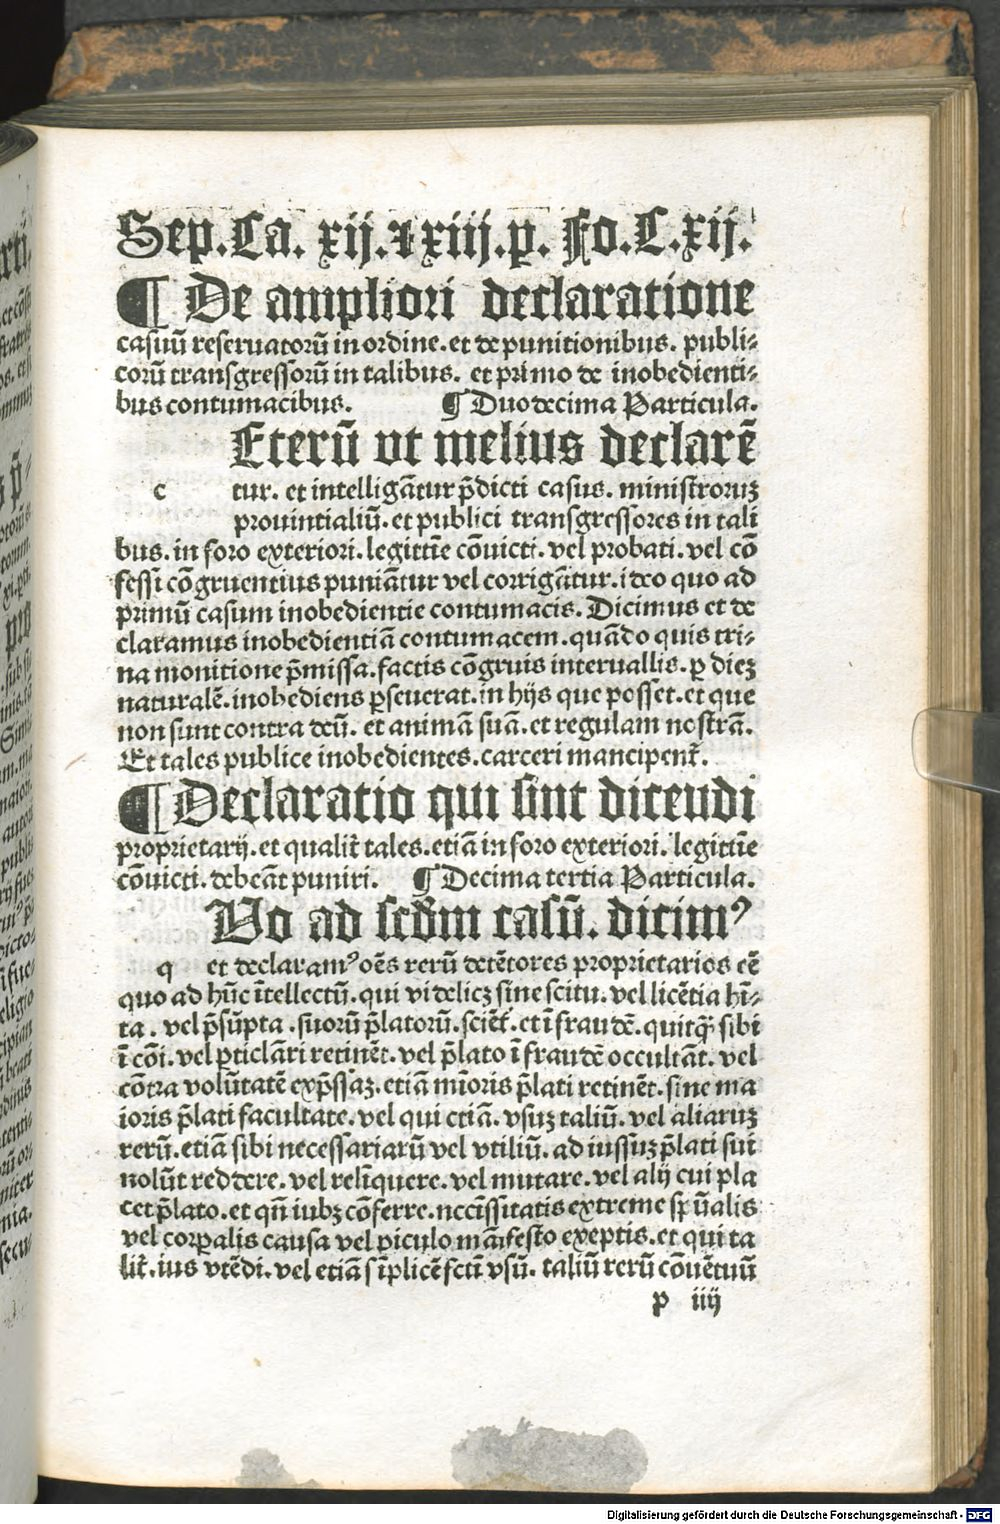 Sep. Ca. xij. ⁊ xiij. p. Fo. C. xij.
¶ De ampliori declaratione
casuū reseruatorū in ordine. et de punitionibus. publi-
corū transgressorū in talibus. et primo de inobedienti-
bus contumacibus. ¶ Duodecima Particula.
Eterū vt melius declarē
c tur. et intelligātur p̄dicti casus. ministroruꝫ
prouintialiū. et publici transgressores in tali
bus. in foro exteriori. legittīe cōuicti. vel probati. vel cō
fessi cōgruentius puniātur vel corrigātur. ideo quo ad
primū casum inobedientie contumacis. Dicimus et de
claramus inobedientiā contumacem. quādo quis tri-
na monitione p̄missa. factis cōgruis interuallis. ꝑ dieꝫ
naturalē. inobediens ꝑseuerat. in hijs que posset. et que
non sunt contra deū. et animā suā. et regulam nostrā.
Et tales publice inobedientes. carceri mancipent̄.
¶ Declaratio qui sint dicendi
proprietarij. et qualit̄ tales. etiā in foro exteriori. legittīe
cōuicti. debeāt puniri. ¶ Decima tertia Particula.
Uo ad scd̄m casū. dicimꝰ
q et declaramꝰ oēs rerū detētores proprietarios eē
quo ad hūc ītellectū. qui videlicꝫ sine scitu. vel licētia hī-
ta. vel p̄sūpta. suorū p̄latorū. sciēt̄. et ī fraudē. quitq̄ sibi
ī cōi. vel ꝑticlāri retinēt. vel p̄lato ī fraudē occultāt. vel
cōtra volūtatē exp̄ssaꝫ. etiā mīoris p̄lati retinēt. sine ma
ioris p̄lati facultate. vel qui etiā. vsuꝫ taliū. vel aliaruꝫ
rerū. etiā sibi necessariarū vel vtiliū. ad iussuꝫ p̄lati sui
nolūt reddere. vel relīquere. vel mutare. vel alij cui pla
cet p̄lato. et qn̄ iubꝫ cōferre. nccīssitatis extreme sꝑ ūalis
vel corꝑalis causa vel ꝑiculo māifesto exeptis. et qui ta
lit̄. ius vtēdi. vel etiā sīplicē fctī vsū. taliū rerū cōuētuū
p iiij
Digitalisierung gefördert durch die Deutsche Forschungsgemeinschaft - DFG